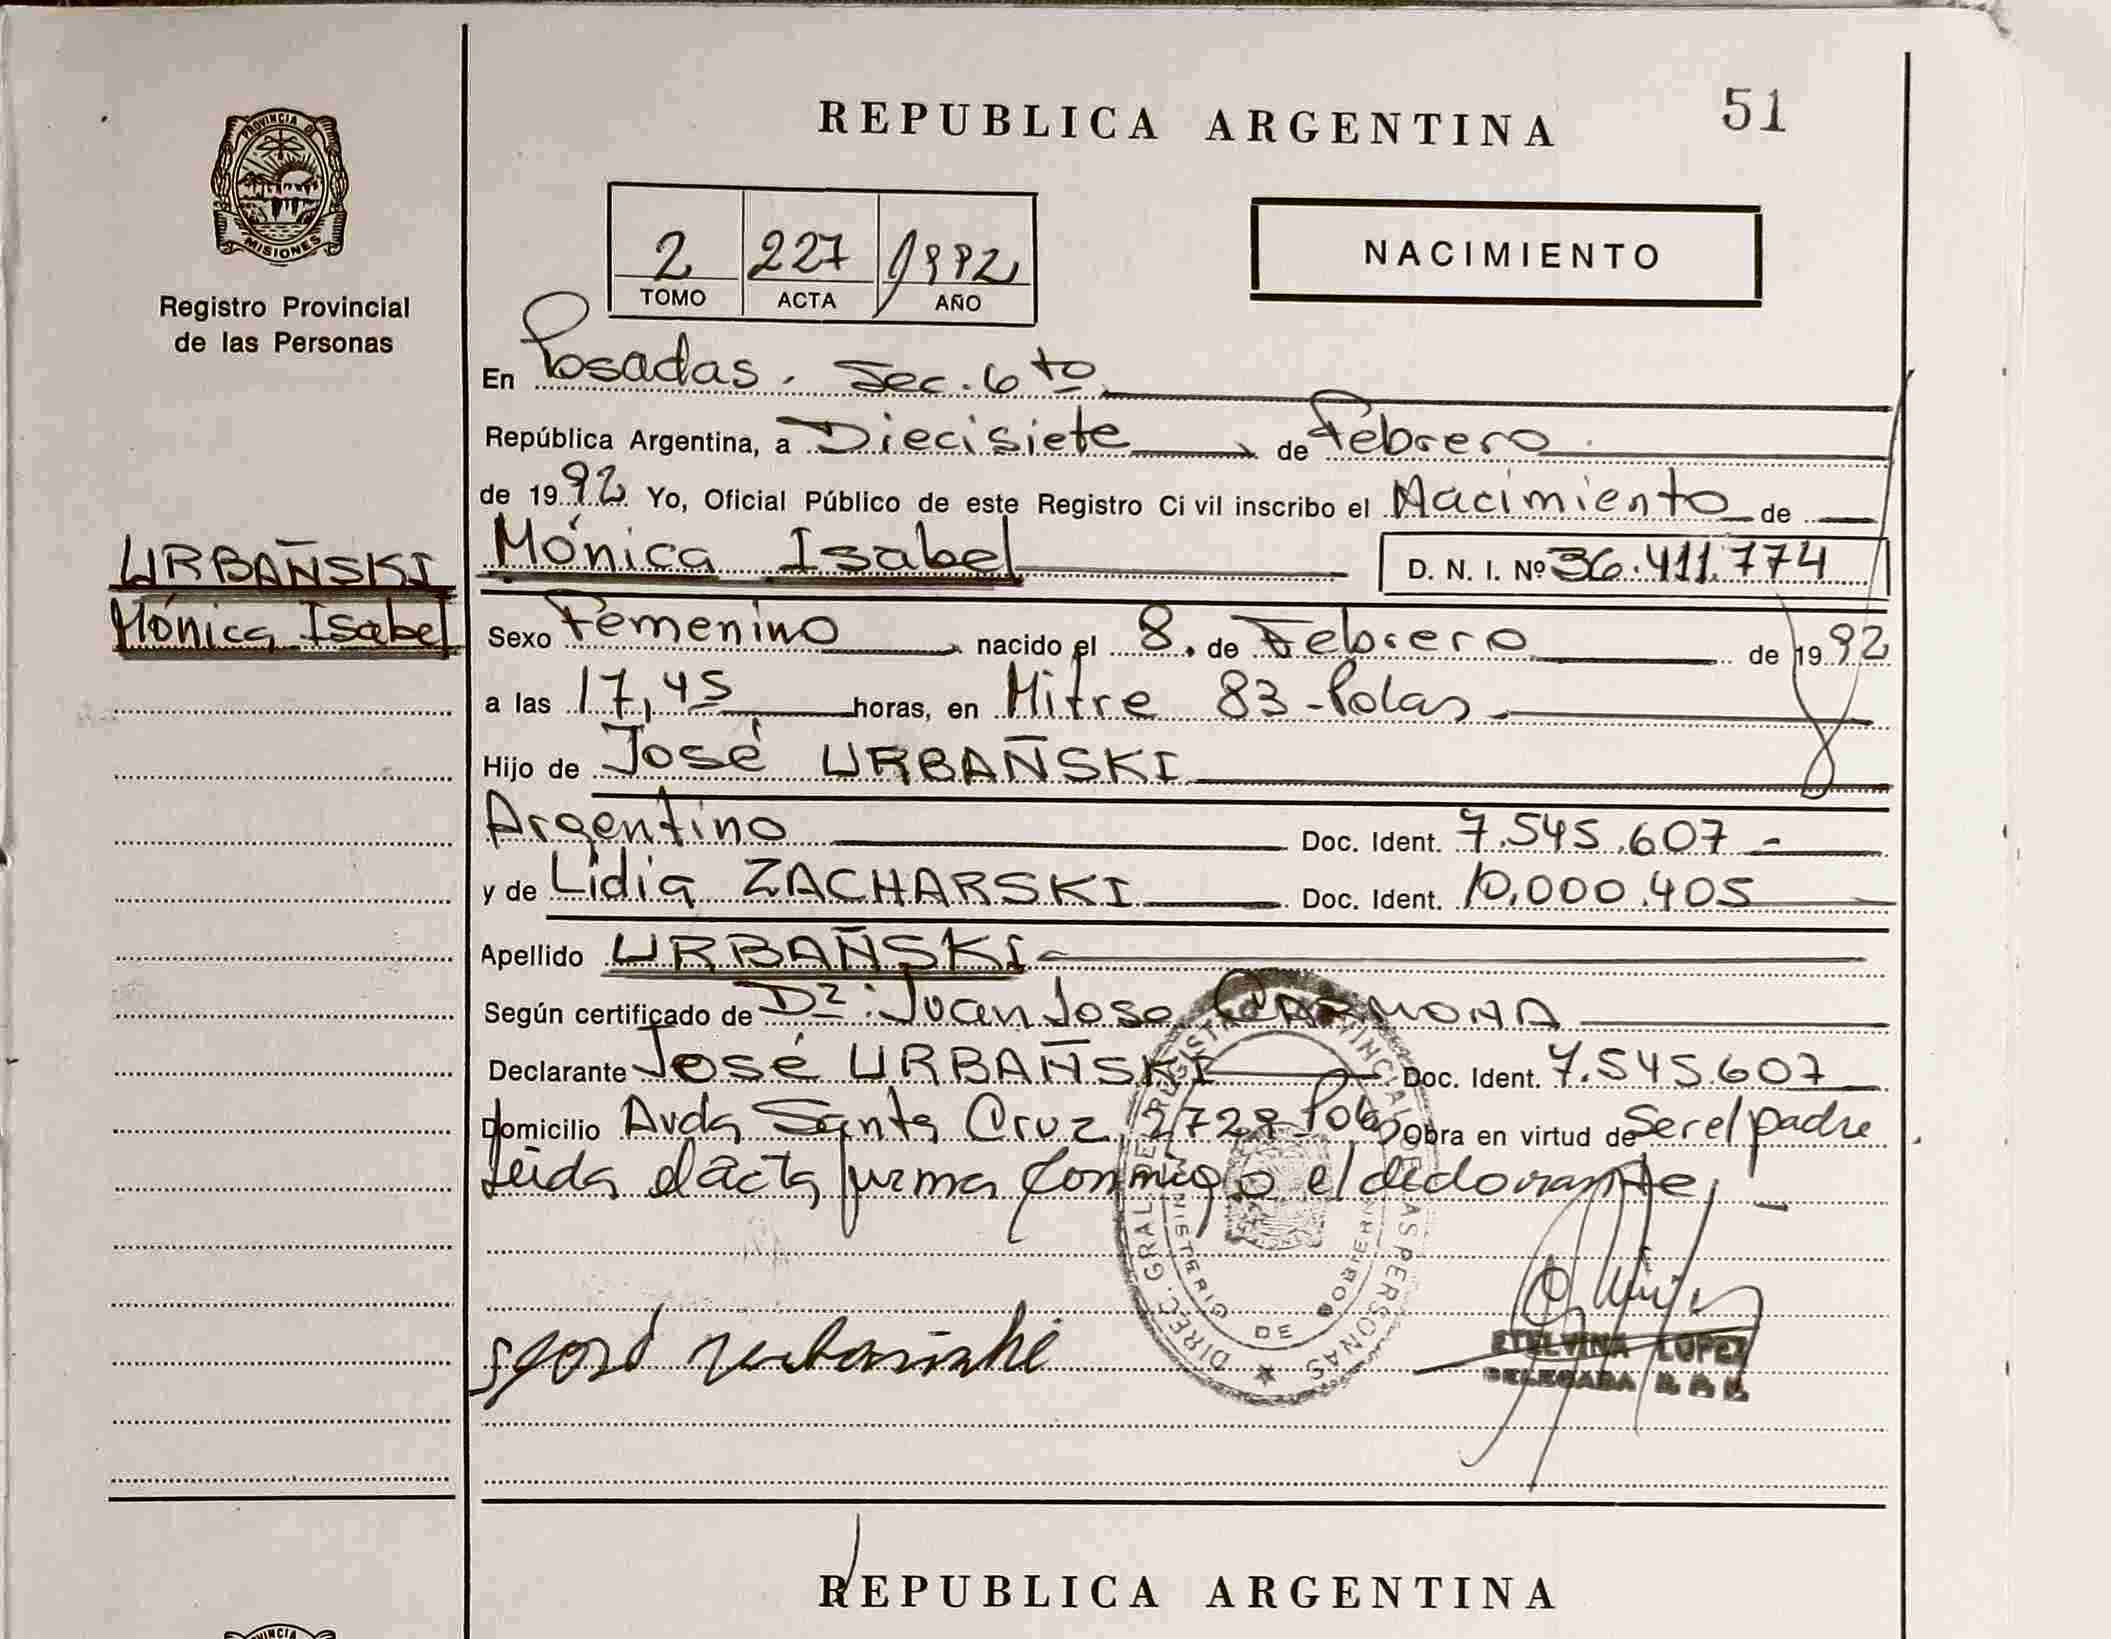 REPUBLICA ARGENTINA
51
PROVINCIA DE
MISIONES
Registro Provincial
de las Personas
2 227 1992
TOMO ACTA AÑO
NACIMIENTO
En Posadas. Sec. 6to
República Argentina, a Diecisiete de Febrero
de 1992 Yo, Oficial Público de este Registro Ci vil inscribo el Nacimiento de
URBAÑSKI
Mónica Isabel
Mónica Isabel D. N. I. Nº 36.411.774
Sexo Femenino nacido el 8 de Febrero de 1992
a las 17,45 horas, en Mitre 83 -
Hijo de José URBAÑSKI
Argentino Doc. Ident. 7.545.607 -
y de Lidia ZACHARSKI Doc. Ident. 10.000.405
Apellido URBAÑSKI
Según certificado de Juan Jose CARMONA
Declarante José URBAÑSKI Doc. Ident. 7.545.607
Domicilio Avda Santa Cruz Obra en virtud de ser el padre
Leida el acta firma conmigo el declarante,
DIREC. GRAL. DE REGISTRO PROVINCIAL DE LAS PERSONAS
MINISTERIO DE GOBIERNO
ETELVINA LOPEZ
DELEGADA
REPUBLICA ARGENTINA